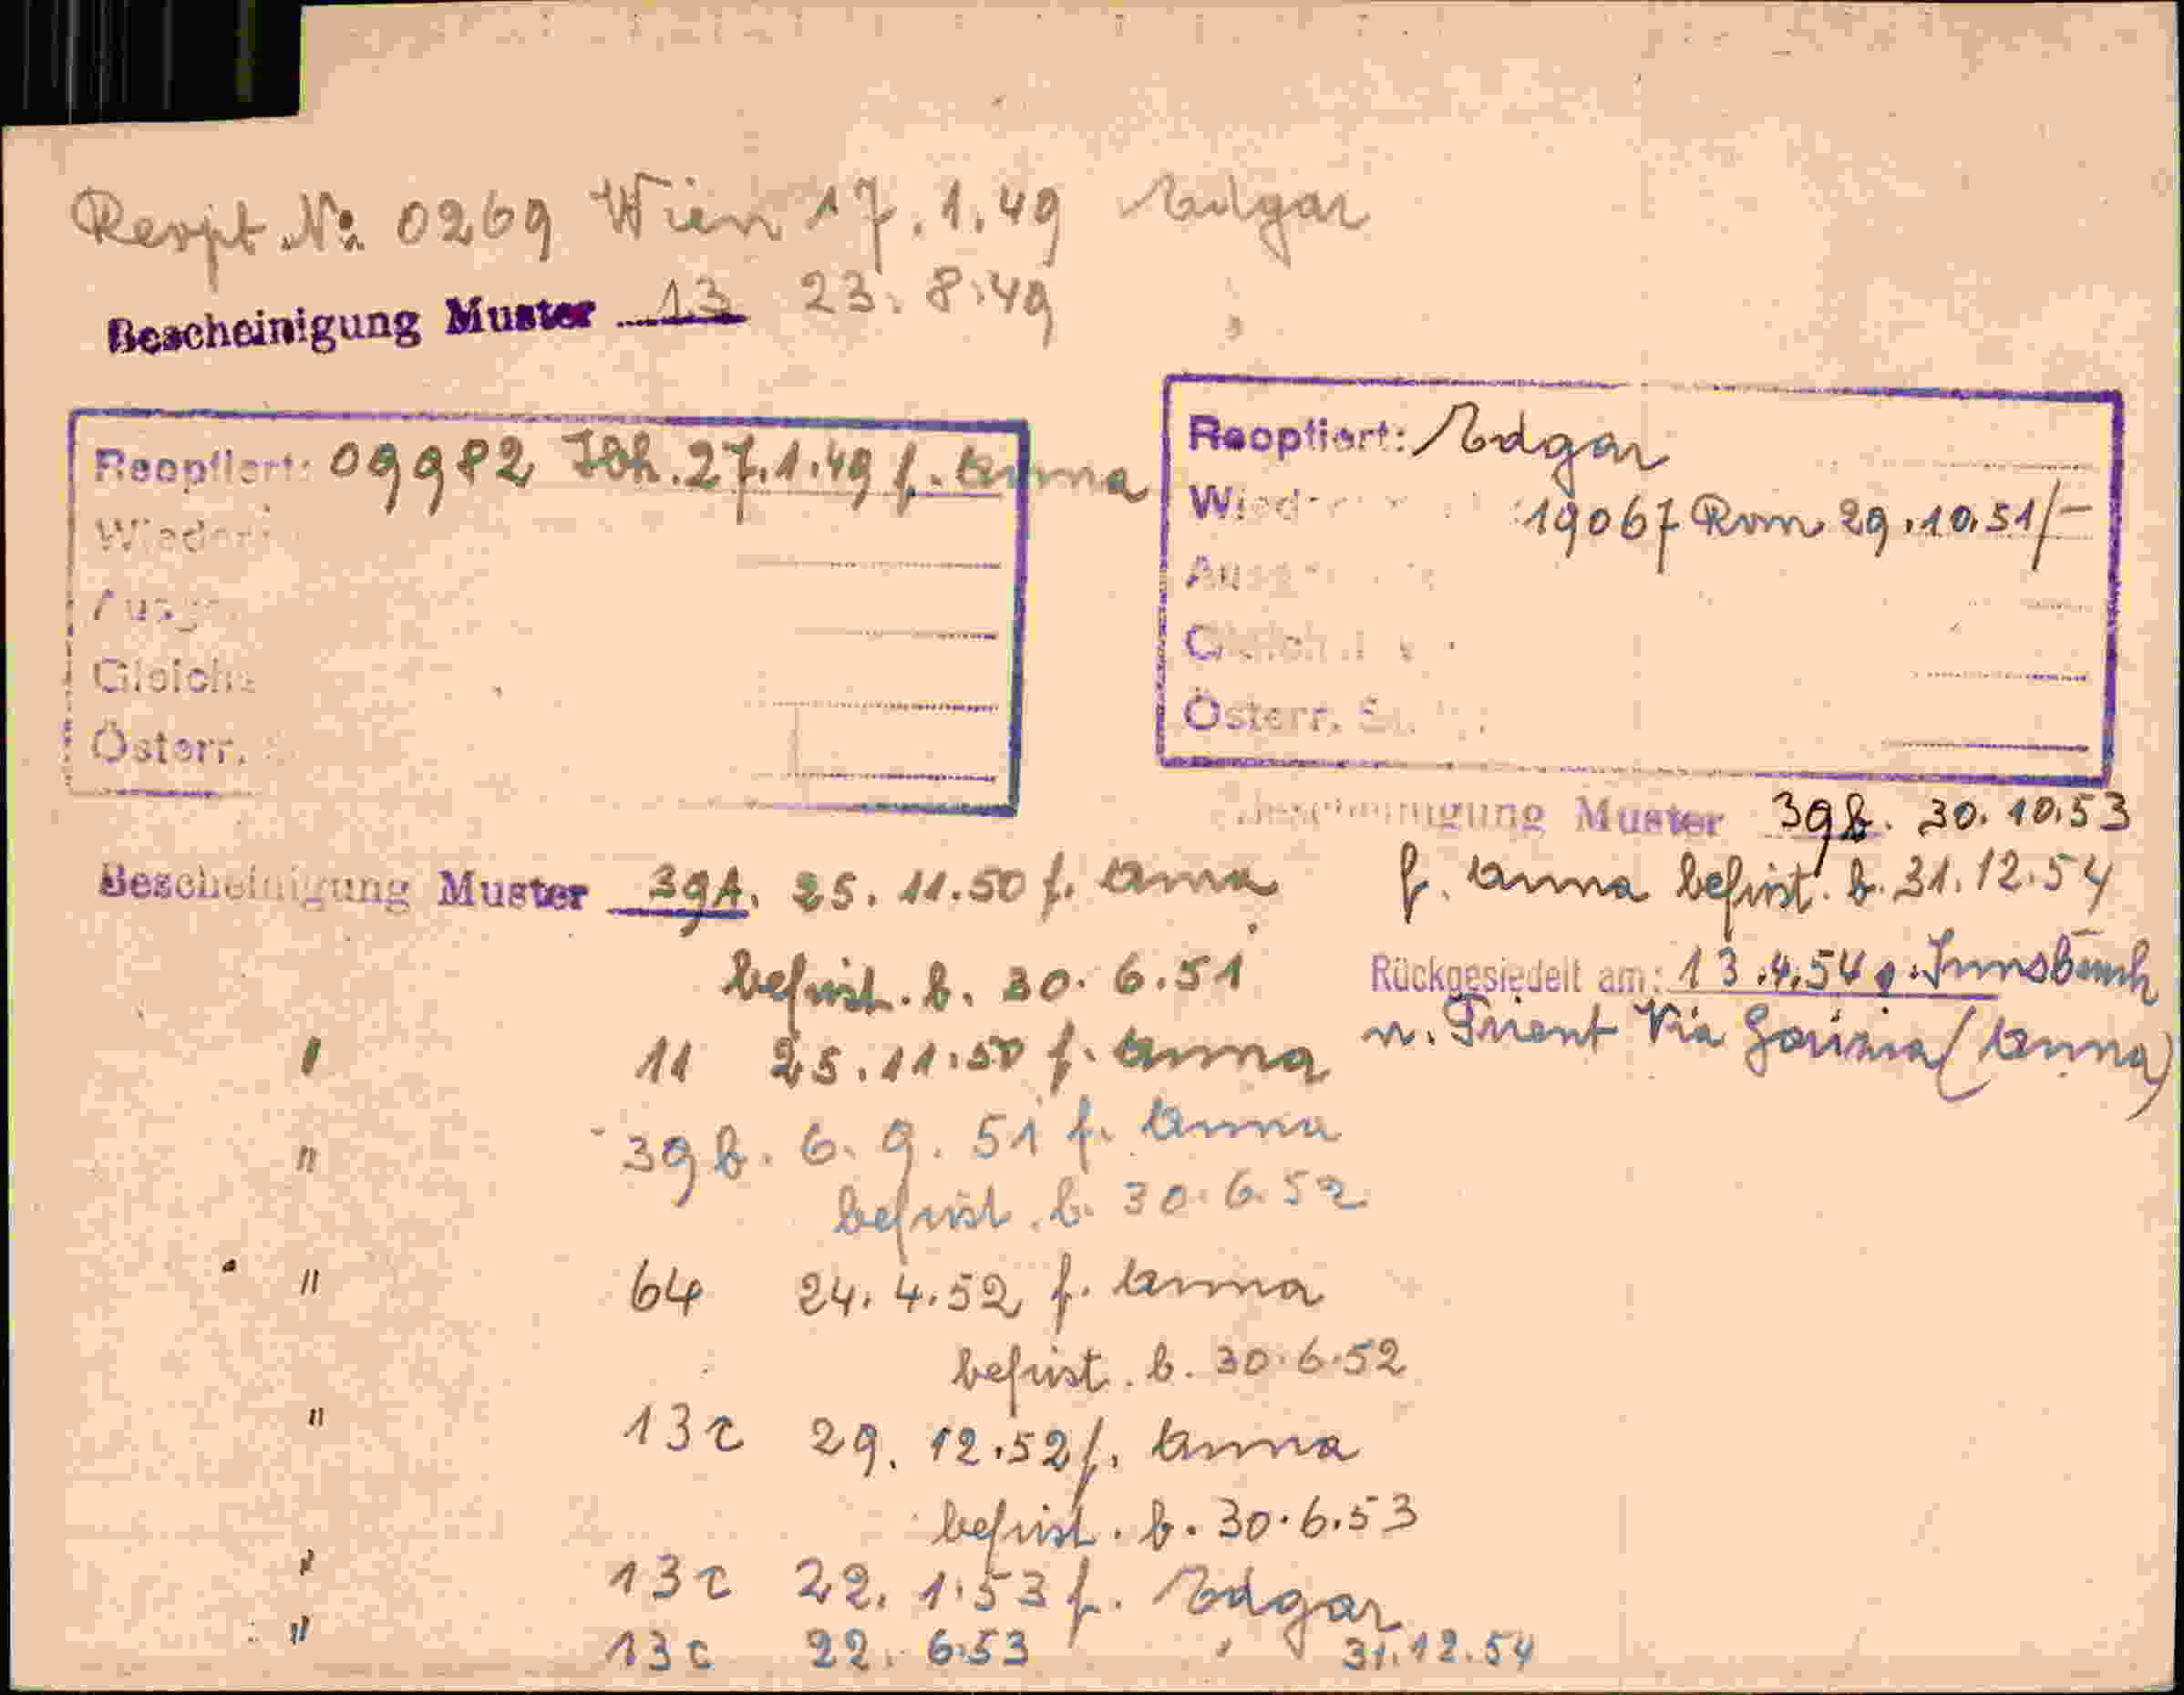 Reopt No 0269 Wien 17.1.49 Edgar
Bescheinigung Muster 13 23.8.49
Reoptiert: 09982 Ibk. 27.1.49 f. Anna
Österr.
Reoptiert: Edgar
19067 Rom 29.10.51/-
Österr.
Bescheinigung Muster 39b. 30.10.53
f. Anna befrist. b. 31.12.54
Rückgesiedelt am: 13.4.54 v. Innsbruck
n. Trient Via Gorizia (Anna)
Bescheinigung Muster 39A. 25.11.50 f. Anna
befrist. b. 30.6.51
" 11 25.11.50 f. Anna
" 39b. 6.9.51 f. Anna
befrist. b. 30.6.52
" 64 24.4.52 f. Anna
befrist. b. 30.6.52
" 13c 29.12.52 f. Anna
befrist. b. 30.6.53
" 13c 22.1.53 f. Edgar
" 13c 22.6.53 " 31.12.54